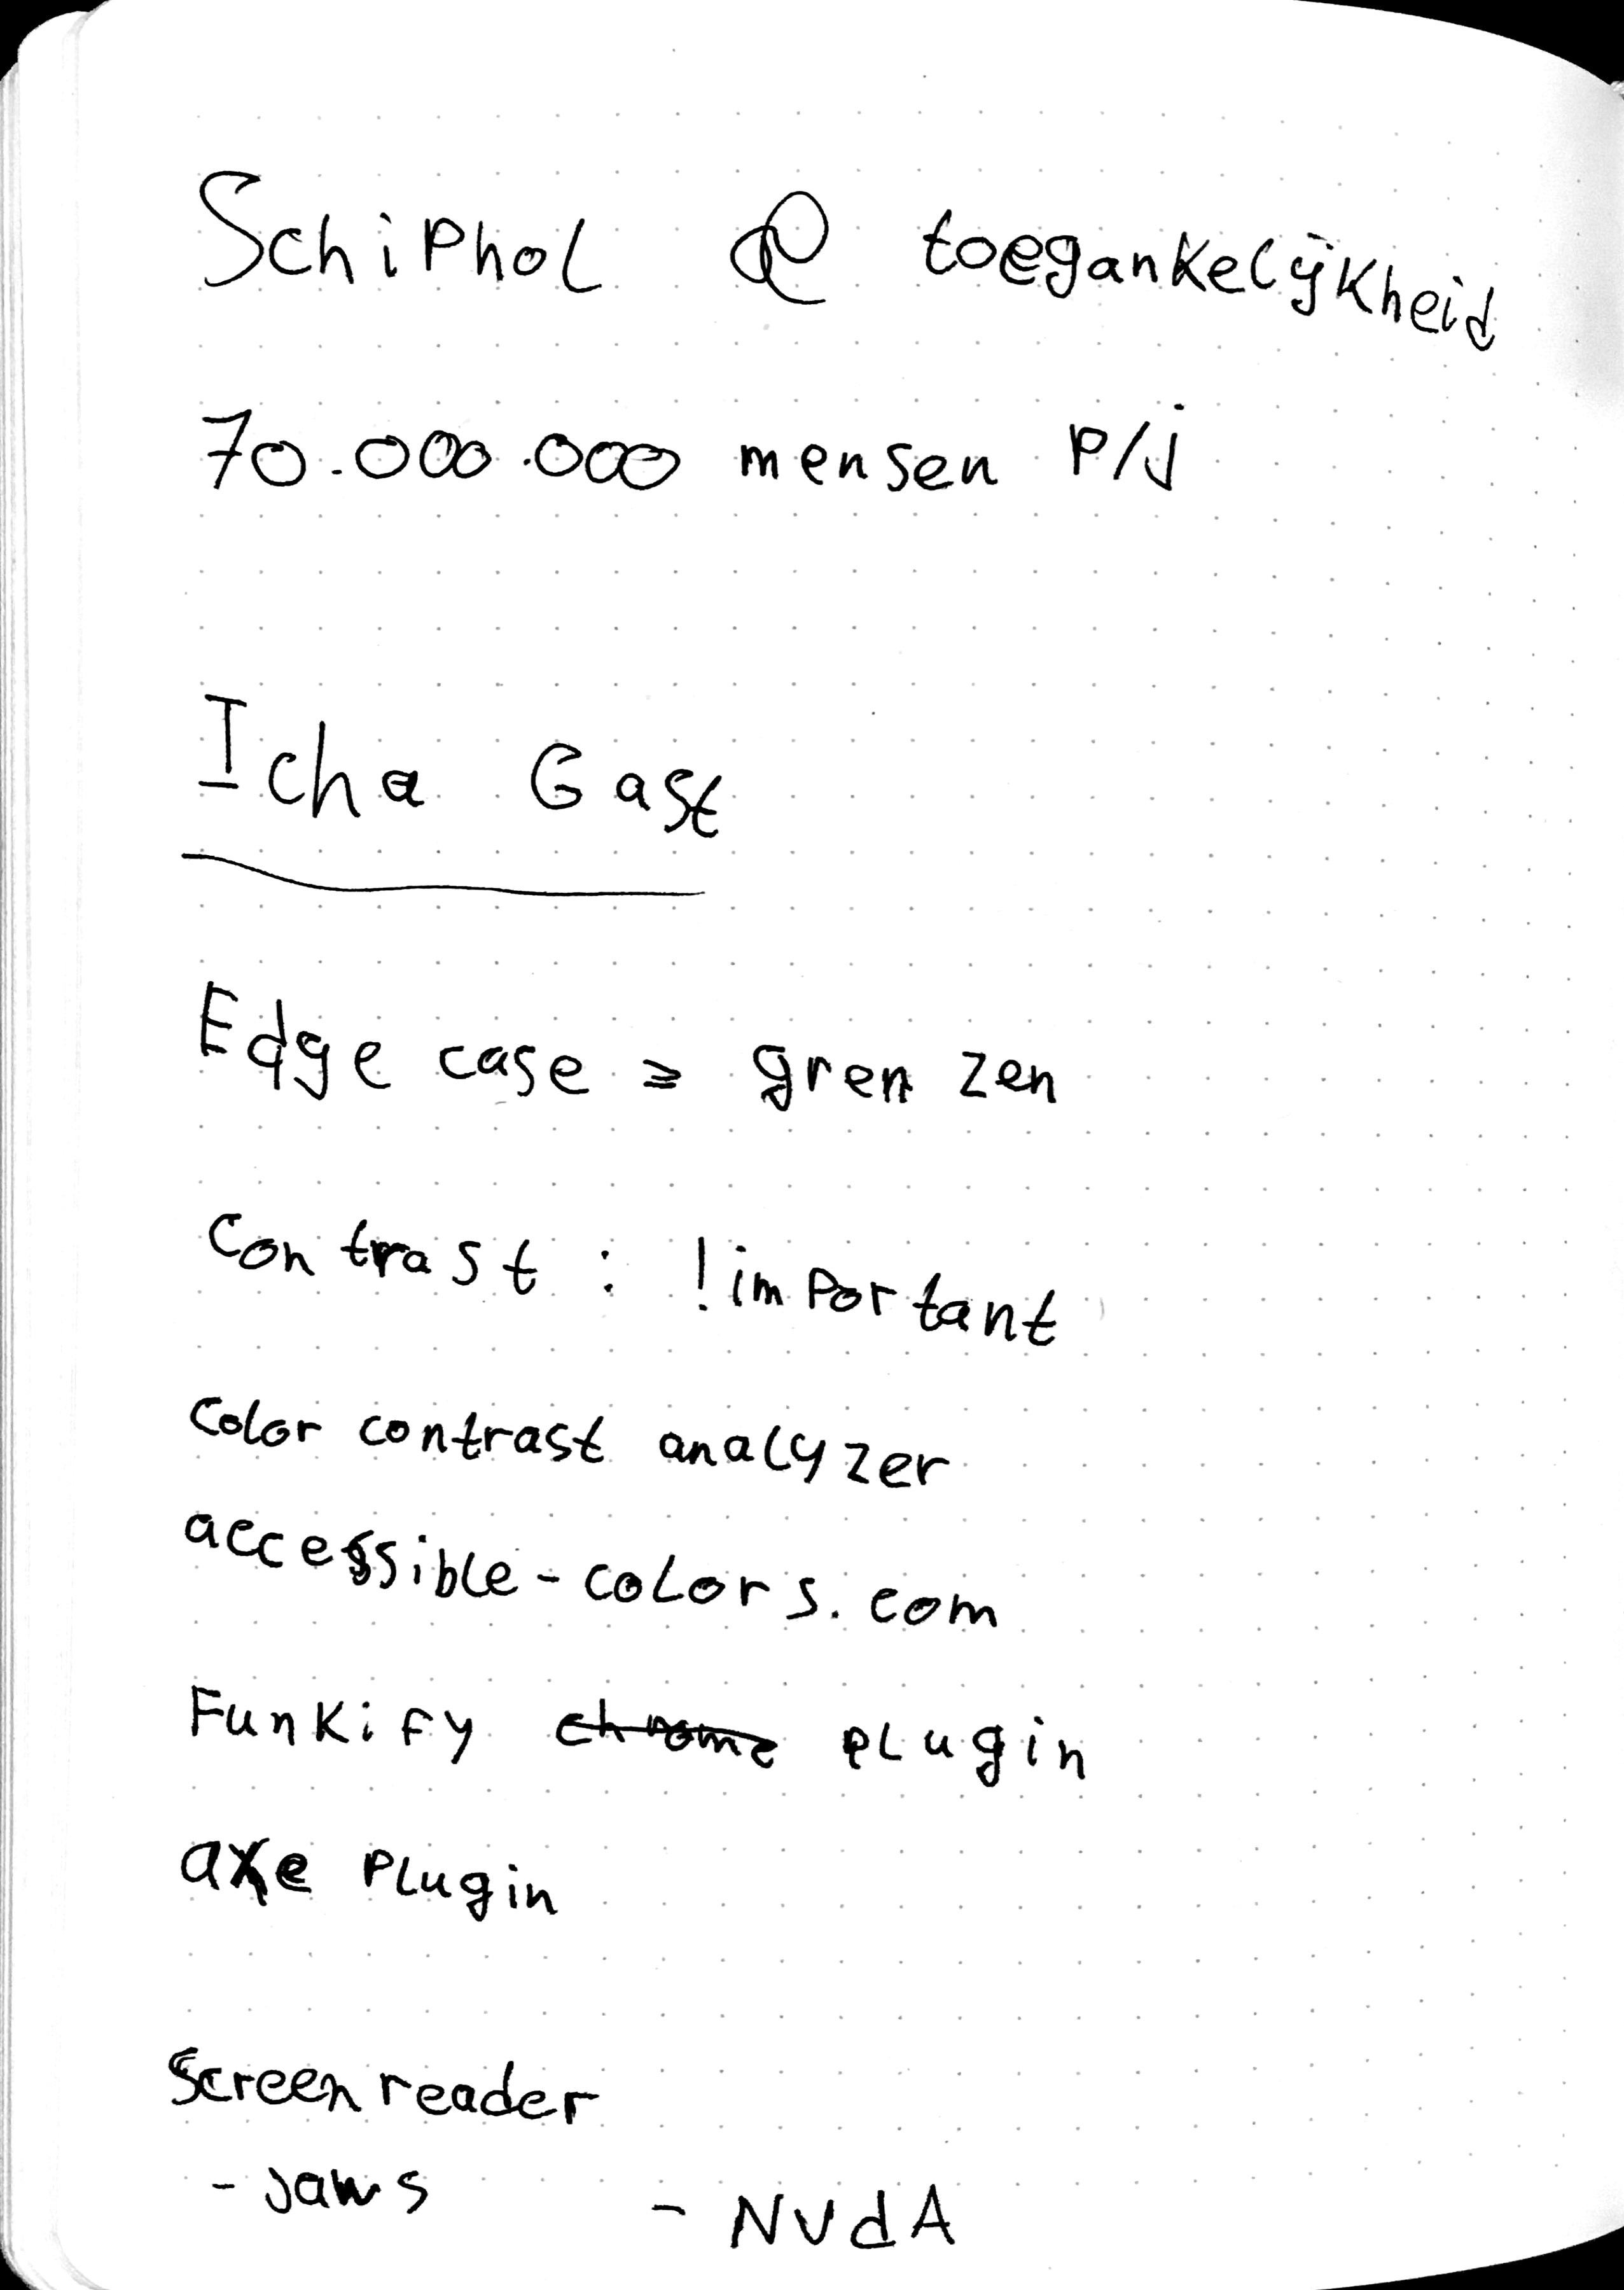 Schiphol & toegankelijkheid
70.000.000 mensen p/j
Icha Gast
Edge case = grenzen
Contrast : !important
Color contrast analyzer
accessible-colors.com
Funkify chrome plugin
axe plugin
screenreader
- jaws - NVdA